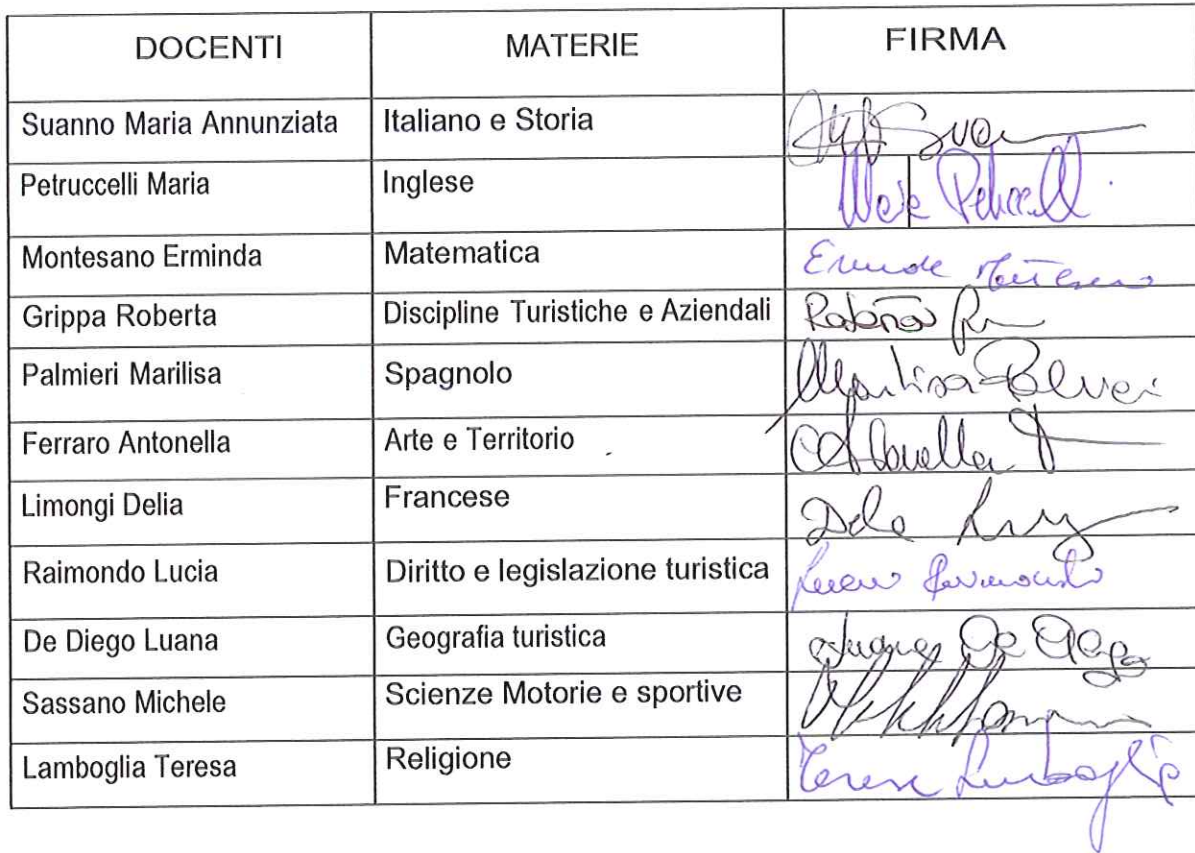 DOCENTI MATERIE FIRMA
Suanno Maria Annunziata Italiano e Storia
Petruccelli Maria Inglese
Montesano Erminda Matematica
Grippa Roberta Discipline Turistiche e Aziendali
Palmieri Marilisa Spagnolo
Ferraro Antonella Arte e Territorio
Limongi Delia Francese
Raimondo Lucia Diritto e legislazione turistica
De Diego Luana Geografia turistica Luana De Diego
Sassano Michele Scienze Motorie e sportive
Lamboglia Teresa Religione Teresa Lamboglia